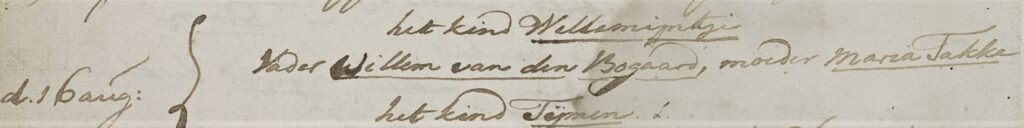 het kind Wellemijntje
Vader Willem van den Bogaard, moeder Maria Takke
d. 16 aug:
het kind Tijmen.